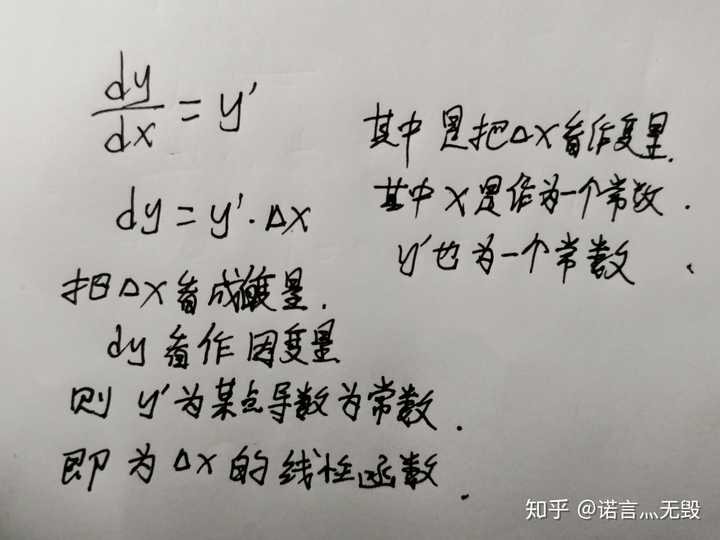 dy/dx = y'
dy = y'·Δx
把Δx看成变量.
dy看作因变量
则 y'为某点导数为常数.
即为Δx的线性函数.
其中是把Δx看作变量.
其中x是作为一个常数.
y'也为一个常数、
知乎 @诺言灬无毁